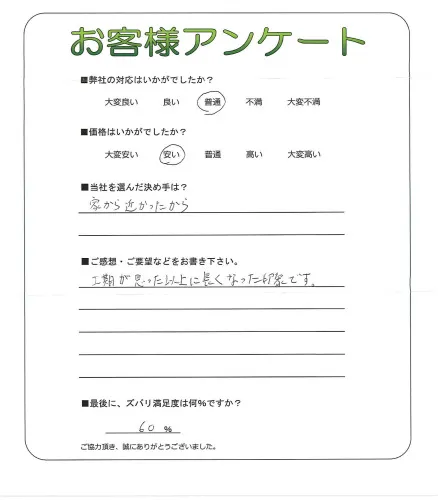 お客様アンケート
■弊社の対応はいかがでしたか？
大変良い 良い 普通 不満 大変不満
■価格はいかがでしたか？
大変安い 安い 普通 高い 大変高い
■当社を選んだ決め手は？
家から近かったから
■ご感想・ご要望などをお書き下さい。
工期が思った以上に長くなった印象です。
■最後に、ズバリ満足度は何％ですか？
60 ％
ご協力頂き、誠にありがとうございました。